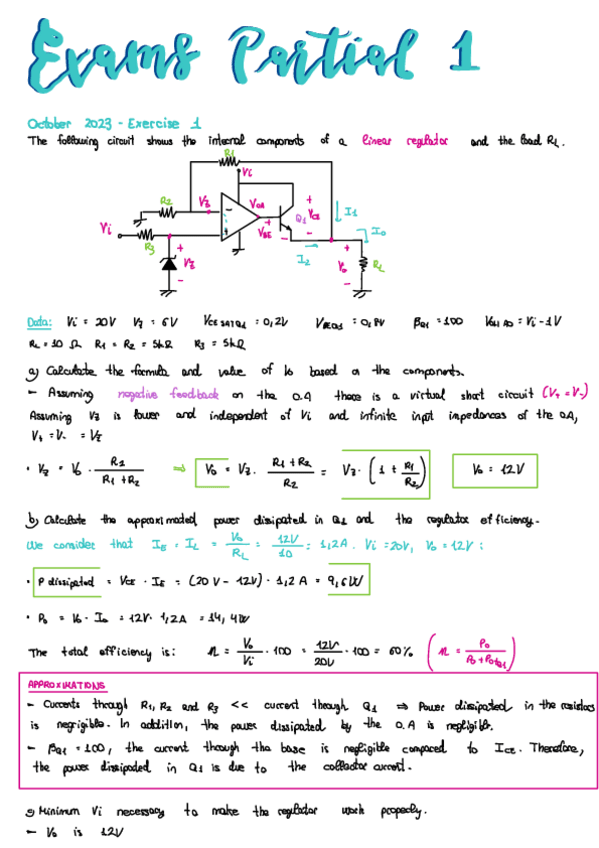 Exams Partial 1
October 2023 - Exercise 1
The following circuit shows the internal components of a linear regulator and the load RL.
R1
Vi
R2
Vz
VOA
Q1
VCE
I1
Vi
VBE
I0
R3
I2
Vz
V0
RL
Data: Vi = 20V Vz = 6V VCESATQ1 = 0,2V VBEQ1 = 0,8V βQ1 = 100 VOH AO = Vi - 1V
RL = 10 Ω R1 = R2 = 5kΩ R3 = 5kΩ
a) Calculate the formula and value of V0 based on the components.
- Assuming negative feedback on the O.A there is a virtual short circuit (V+ = V-)
Assuming Vz is lower and independent of Vi and infinite input impedances of the OA,
V+ = V- = Vz
• Vz = V0 · R2 / (R1 + R2) ⇒ V0 = Vz · (R1 + R2) / R2 = Vz · (1 + R1/R2) V0 = 12V
b) Calculate the approximated power dissipated in Q1 and the regulator efficiency.
We consider that IE = IL = V0/RL = 12V/10 = 1,2A. Vi = 20V, V0 = 12V :
• P dissipated = VCE · IE = (20V - 12V) · 1,2A = 9,6W
• P0 = V0 · I0 = 12V · 1,2A = 14,4W
The total efficiency is: n = V0/Vi · 100 = 12V/20V · 100 = 60% (n = P0 / (P0 + PDQ1))
APPROXIMATIONS
- Currents through R1, R2 and R3 << current through Q1 ⇒ Power dissipated in the resistors
is negrigible. In addition, the power dissipated by the O.A is negligible.
- βQ1 = 100, the current through the base is negligible compared to ICE. Therefore,
the power dissipated in Q1 is due to the collector current.
c) Minimum Vi necessary to make the regulator work properly.
- V0 is 12V